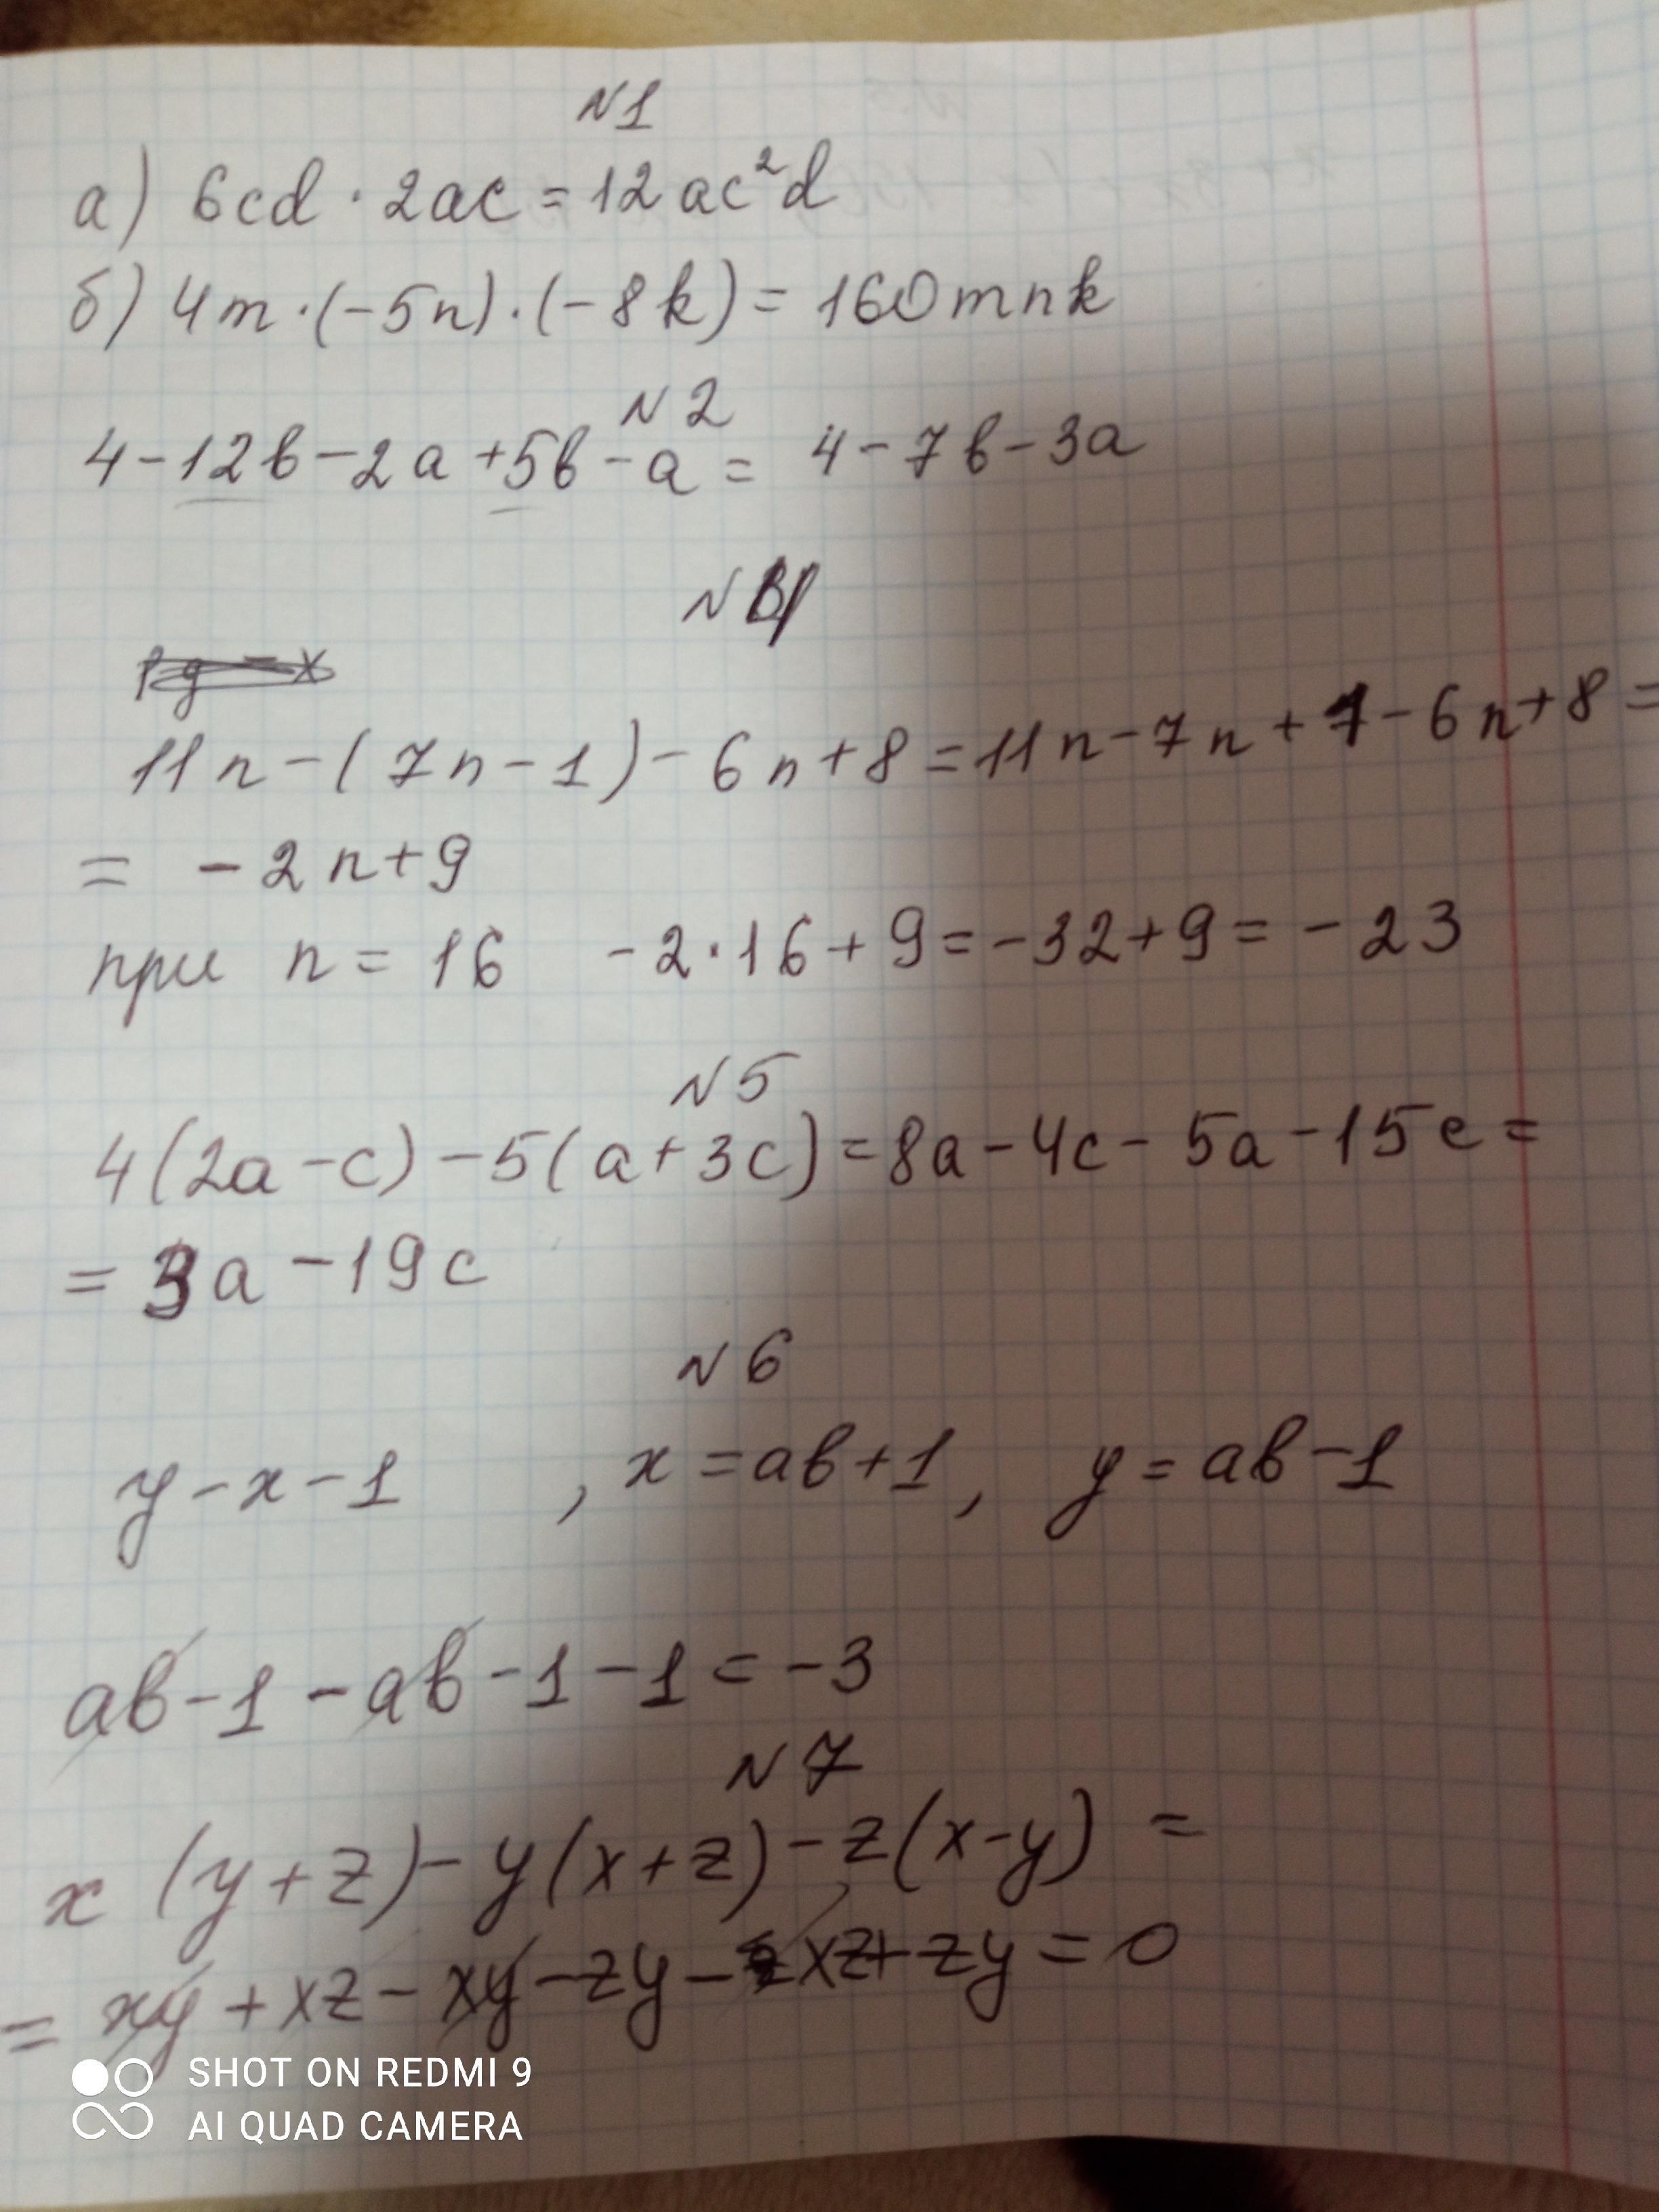 №1
а) 6cd · 2ac = 12ac²d
б) 4m · (-5n) · (-8k) = 160mnk
№2
4 - 12b - 2a + 5b - a = 4 - 7b - 3a
№
11n - (7n - 1) - 6n + 8 = 11n - 7n + 1 - 6n + 8 =
= -2n + 9
при n = 16 -2 · 16 + 9 = -32 + 9 = -23
№5
4(2a - c) - 5(a + 3c) = 8a - 4c - 5a - 15c =
= 3a - 19c
№6
y - x - 1 , x = ab + 1, y = ab - 1
ab - 1 - ab - 1 - 1 = -3
№7
x (y + z) - y(x + z) - z(x - y) =
= xy + xz - xy - zy - xz + zy = 0
SHOT ON REDMI 9
AI QUAD CAMERA